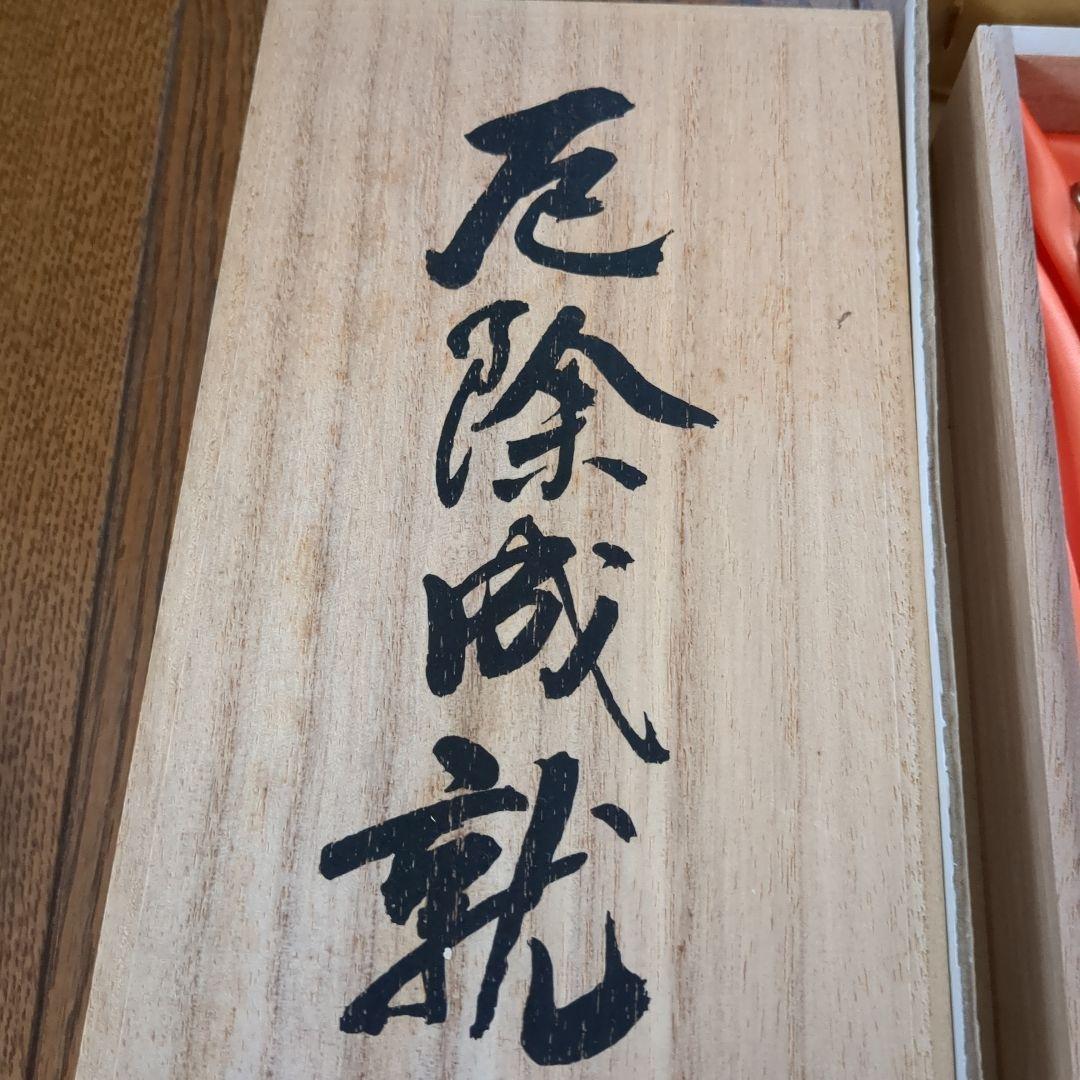 厄除成就